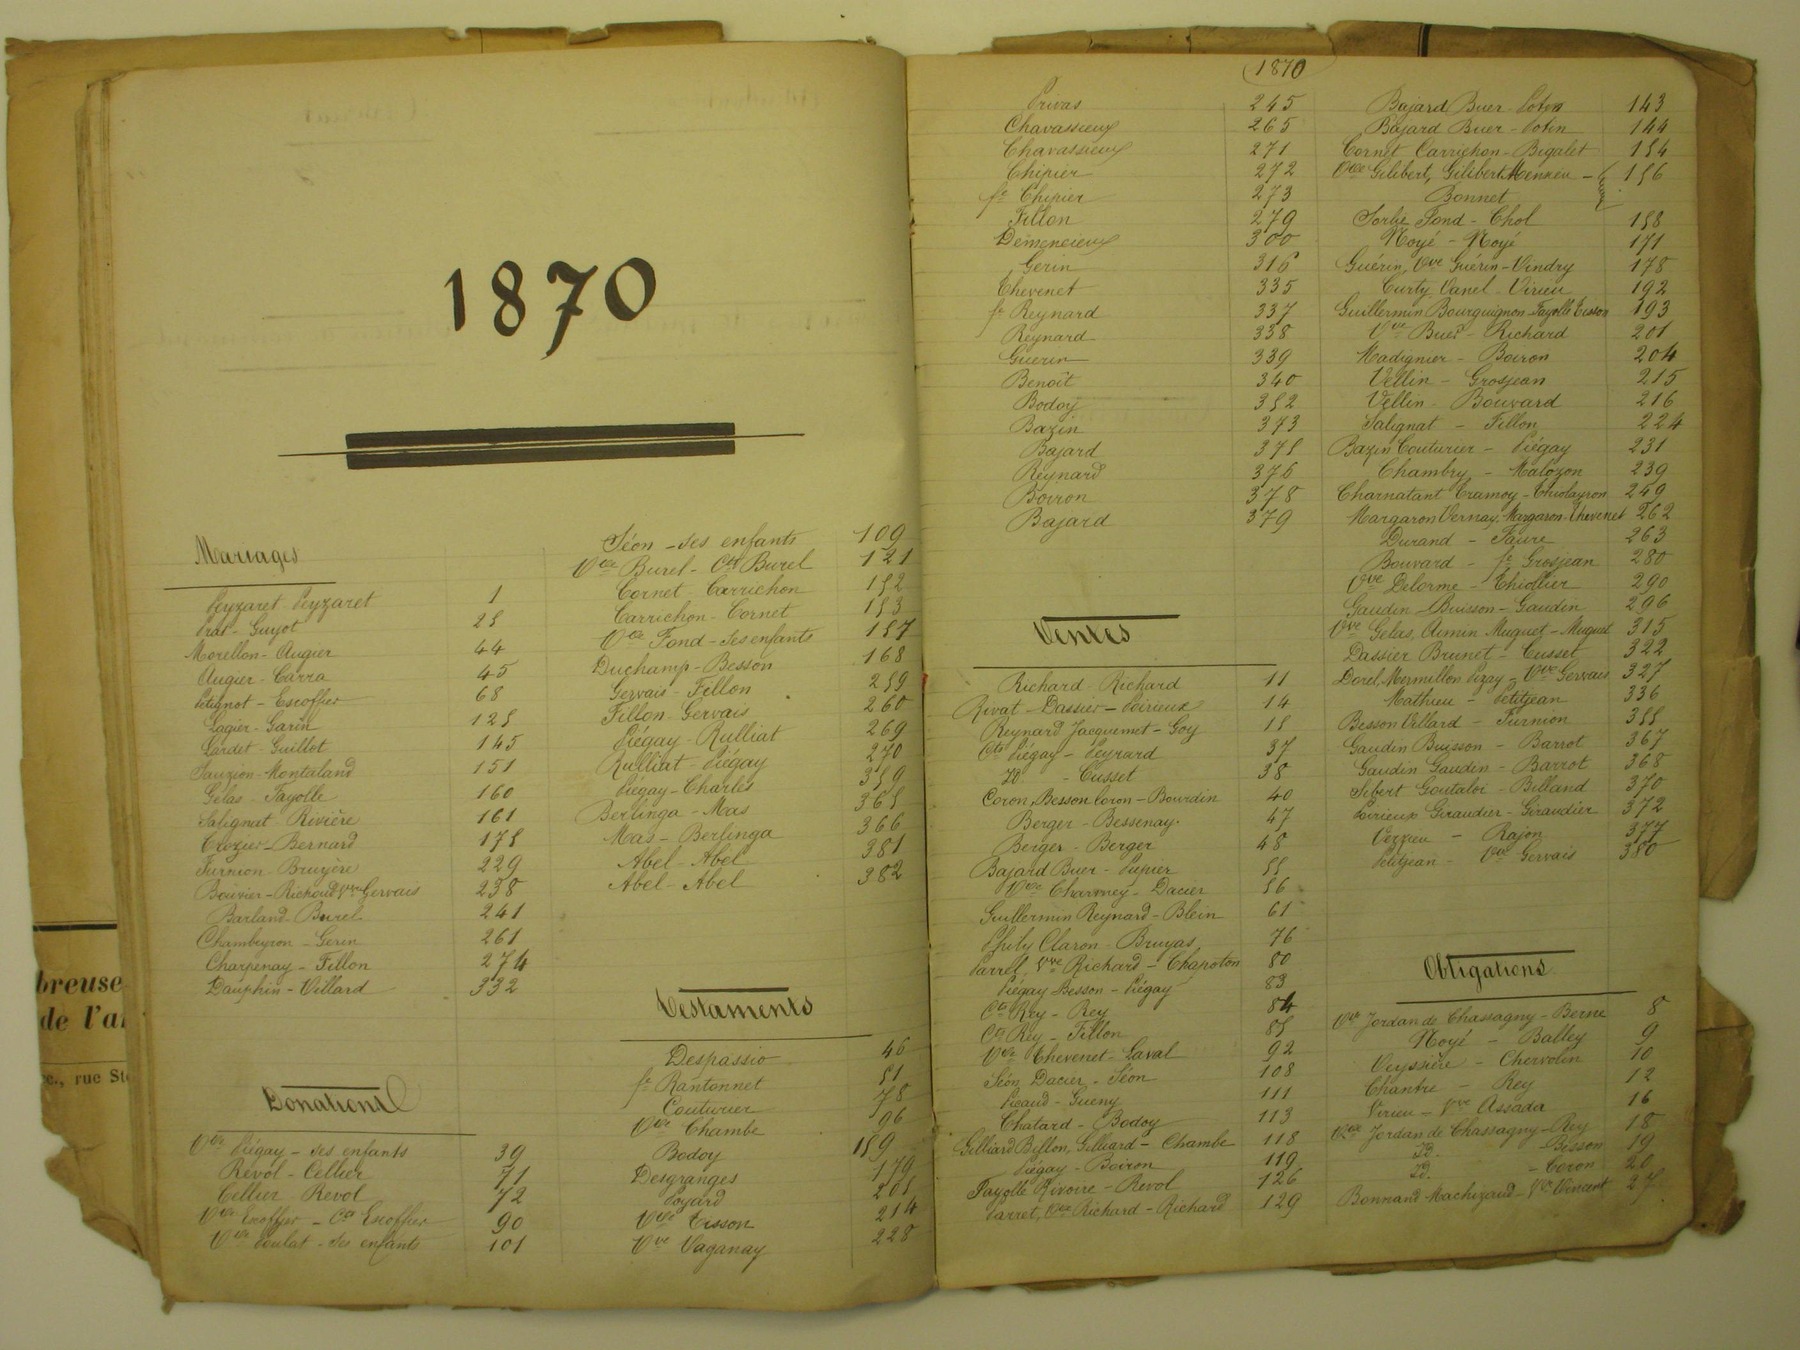 1870
Mariages
Peyzaret - Peyzaret 1
Prat - Guyot 25
Morellon - Augier 44
Augier - Carra 45
Petignot - Escoffier 68
Lagier - Garin 125
Lardet - Guillot 145
Sauzion - Montaland 151
Gelas - Fayolle 160
Salignat - Rivière 161
Crozier - Bernard 175
Furnion - Bruyère 229
Bouvier - Richoud Vve Gervais 238
Barland - Burel 241
Chambeyron - Gerin 261
Charpenay - Fillon 274
Dauphin - Villard 332
Donations
Vve Piégay - ses enfants 39
Revol - Cellier 71
Cellier Revol 72
Vve Escoffier - Cts Escoffier 90
Vve Poulat - ses enfants 101
Séon - ses enfants 109
Vve Burel - Cts Burel 121
Cornet - Carrichon 152
Carrichon - Cornet 153
Vve Fond - ses enfants 157
Duchamp - Besson 168
Gervais - Fillon 259
Fillon - Gervais 260
Piégay - Rulliat 269
Rulliat - Piégay 270
Piégay - Charles 359
Berlinga - Mas 365
Mas - Berlinga 366
Abel - Abel 381
Abel - Abel 382
Testaments
Despassio 46
fe Rantonnet 51
Couturier 78
Vve Chambe 96
Bodoy 159
Desgranges 179
Poyard 205
Vve Tisson 214
Vve Vaganay 228
breuse
de l'a
rue St
1870
Privas 245
Chavassieux 265
Chavassieux 271
Chipier 272
fe Chipier 273
Fillon 279
Démencieux 300
Gerin 316
Thevenet 335
fe Reynard 337
Reynard 338
Guerin 339
Benoît 340
Bodoy 352
Bazin 373
Bajard 375
Reynard 376
Boiron 378
Bajard 379
Ventes
Richard - Richard 11
Rivat - Dassier - Poirieux 14
Reynard Jacquemet - Goy 15
Cts Piégay - Peyrard 37
Id - Cusset 38
Coron, Besson Coron - Bourdin 40
Berger - Bessenay 47
Berger - Berger 48
Bajard Buer - Pupier 55
Vve Charmey - Dacier 56
Guillermin Reynard - Blein 61
Phily Claron - Bruyas 76
Parret, Vve Richard - Chapoton 80
Piégay Besson - Piégay 83
Cts Rey - Rey 84
Cts Rey - Fillon 85
Vve Thevenet - Laval 92
Séon Dacier - Séon 108
Picaud - Gueny 111
Chatard - Bodoy 113
Gilliard Biffon, Gilliard - Chambe 118
Piégay - Boiron 119
Fayolle Rivoire - Revol 126
Parret, Vve Richard - Richard 129
Bajard Buer - Potin 143
Bajard Buer - Potin 144
Cornet Carrichon - Bigalet 154
Vve Gilibert, Gilibert, - 156
Bonnet
Fond - Chol 158
Noyé - Noyé 171
Guérin, Vve Guérin - Vindry 178
Curty Vanel - Virieu 192
Guillermin Bourguignon - Fayolle Tisson 193
Vve Buer - Richard 201
Madignier - Boiron 204
Vellin - Grosjean 215
Vellin - Bouvard 216
Salignat - Fillon 224
Bazin Couturier - Piégay 231
Chambry - Malozon 239
Charnatant Tramoy - Thiolayron 249
Margaron Vernay, Margaron - Thevenet 262
Durand - Faure 263
Bouvard - fe Grosjean 280
Vve Delorme - Thiollier 290
Gaudin Buisson - Gaudin 296
Vve Gelas, Aimin Muguet - Muguet 315
Dassier Brunet - Cusset 322
Dorel, Mermillon Pizay - Vve Gervais 327
Mathieu - Petitjean 336
Besson Villard - Furnion 355
Gaudin Buisson - Barrot 367
Gaudin Gaudin - Barrot 368
Sibert Goutaloi - Billand 370
Poirieux Giraudier - Giraudier 372
Vezzeu - Rajon 377
Petitjean - Vve Gervais 380
Obligations
Vve Jordan de Chassagny - Berne 8
Noyé - Balley 9
Veyssière - Chervolin 10
Chantre - Rey 12
Virieu - Vve Assada 16
Vve Jordan de Chassagny - Rey 18
Id. - Bisson 19
Id. - Coron 20
Bonnand Machizaud - Vve Vincent 27